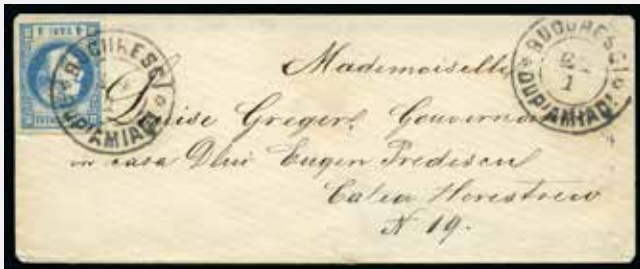 BUCURESCI
DUPIAMIADI
BUCURESCI
1
DUPIAMIADI
Mademoiselle
Louise Gregerl, Gouverna
in casa Dlui Eugen Predescul
Calea Herestreu
N 19.